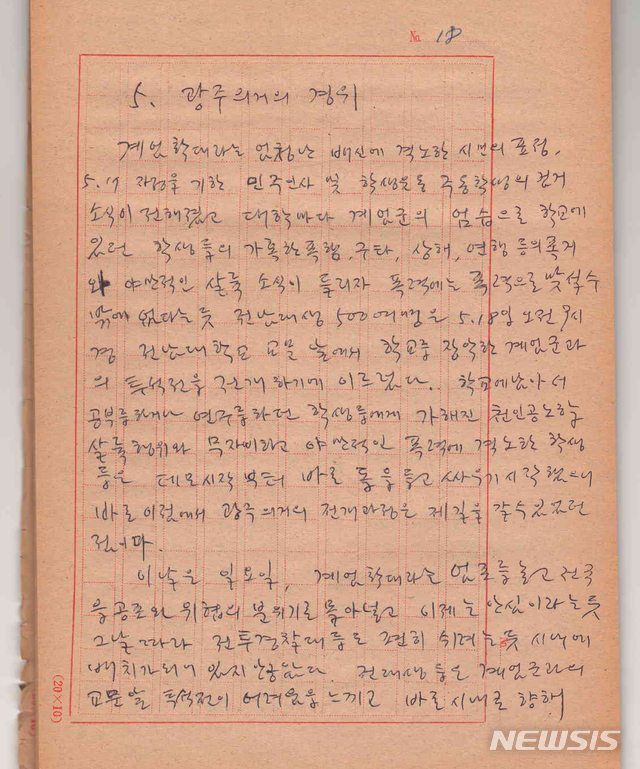 № 18
5. 광주의거의 경위
계엄확대라는 엄청난 배신에 격노한 시민의 표정.
5.17 자정을 기한 민주인사 및 학생운동 주동학생의 검거
소식이 전해졌고 대학마다 계엄군의 엄습으로 학교에
있던 학생들의 가혹한 폭행, 구타, 상해, 연행 등의 폭거
와 야만적인 살륙 소식이 들리자 폭력에는 폭력으로 맞설수
밖에 없다는듯 전남대생 500여명은 5.18일 오전 9시
경 전남대학교 교문 앞에서 학교를 장악한 계엄군과
의 투석전을 전개하기에 이르렀다. 학교에 남아서
공부를 하거나 연구를 하던 학생들에게 가해진 천인공노할
살륙행위와 무자비하고 야만적인 폭력에 격노한 학생
들은 데모시작부터 바로 돌을 들고 싸우기 시작했으니
바로 이점에서 광주의거의 전개과정은 제길을 갈수 있었던
것이다.
이날은 일요일, 계엄확대라는 엄포를 놓고 전국
을 공포와 위협의 분위기로 몰아넣고 이제는 안심이라는듯
그날따라 전투경찰대들도 편히 쉬려는듯 시내에
배치가 되어 있지 않았다. 전대생들은 계엄군과의
교문앞 투석전이 어려움을 느끼고 바로 시내로 향해
(20×10)
NEWSIS